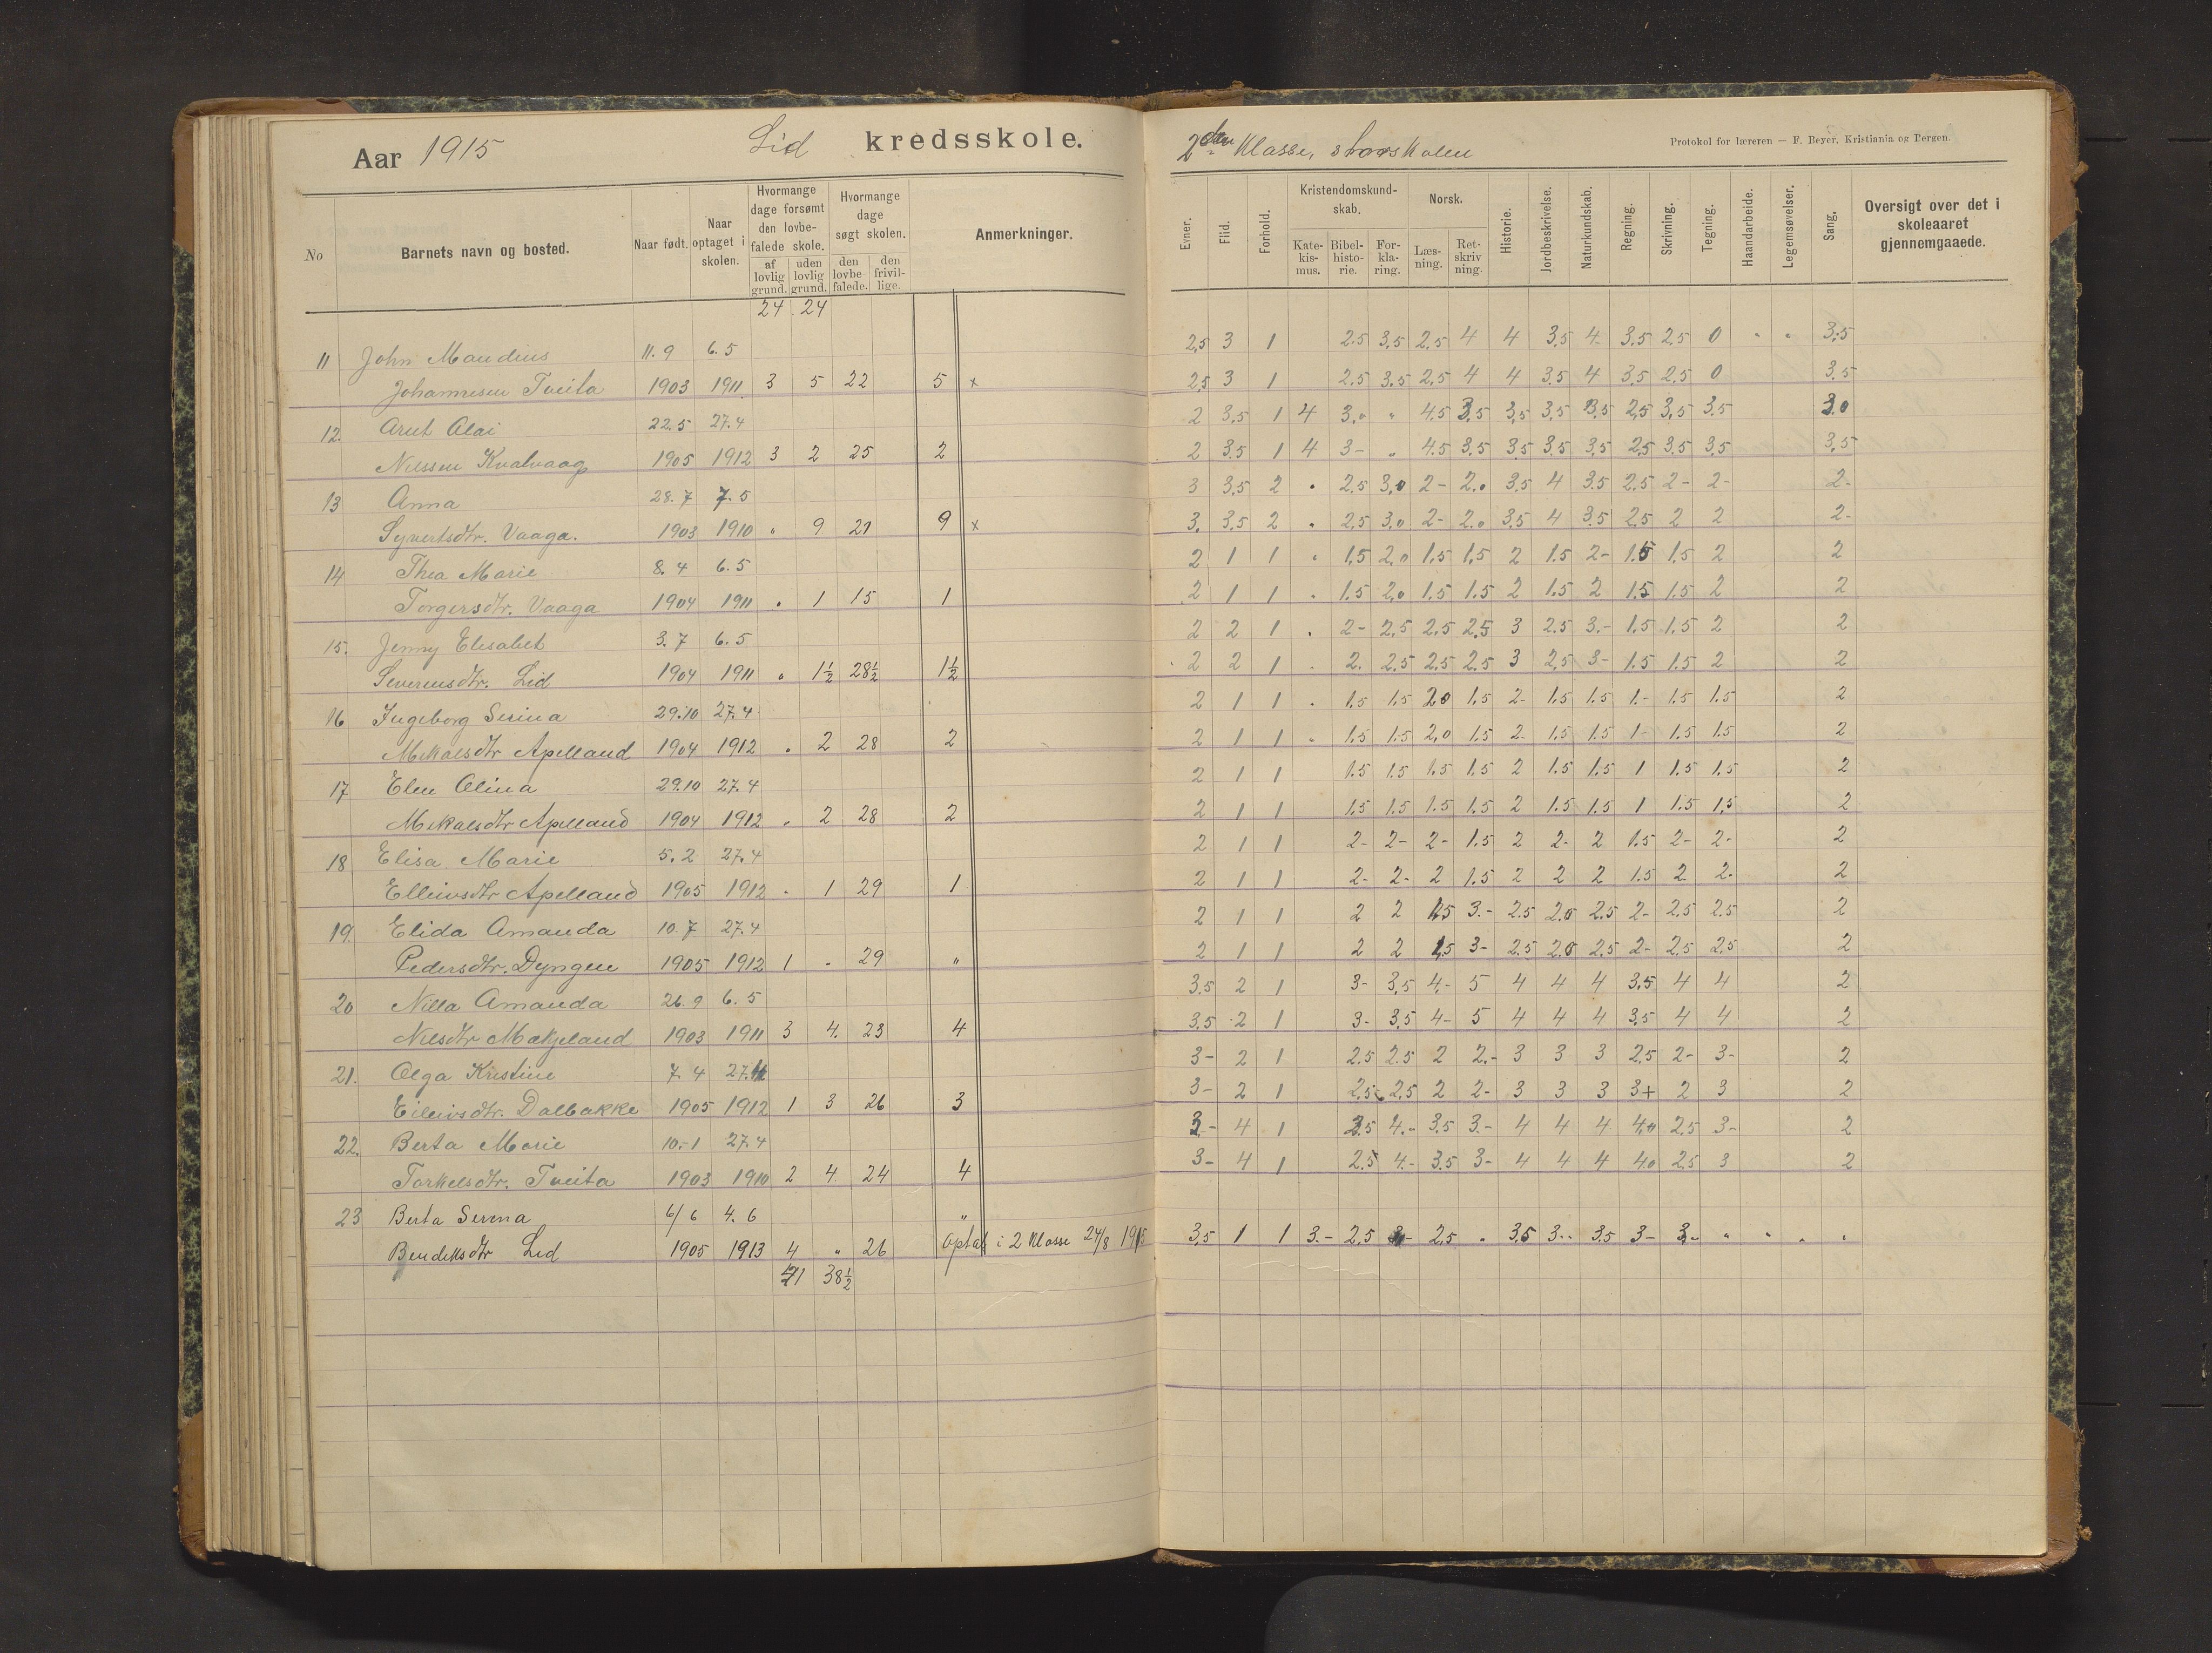 Aar 1915 Lid kredsskole.
No
Barnets navn og bosted.
Naar født.
Naar optaget i skolen.
Hvormange dage forsømt den lovbefalede skole.
af lovlig grund.
uden lovlig grund.
Hvormange dage søgt skolen.
den lovbefalede.
den frivillige.
Anmerkninger.
24 24
11 John Maudius 11.9 6.5
Johannesen Tveita 1903 1911 3 5 22 5 x
12 Arut Olai 22.5 27.4
Nilssen Kvalvaag 1905 1912 3 2 25 2
13 Anna 28.7 7.5
Syvertsdtr. Vaaga. 1903 1910 " 9 21 9 x
14 Thea Marie 8.4 6.5
Torgersdtr. Vaaga 1904 1911 " 1 15 1
15. Jenny Elisabet 3.7 6.5
Severinsdtr. Lid 1904 1911 " 1½ 28½ 1½
16 Ingeborg Serina 29.10 27.4
Mikalsdtr Apelland 1904 1912 " 2 28 2
17 Elen Olina 29.10 27.4
Mikalsdtr Apelland 1904 1912 " 2 28 2
18 Elisa Marie 5.2 27.4
Elleivsdtr Apelland 1905 1912 " 1 29 1
19. Elida Amanda 10.7 27.4
Pedersdtr. Dyngen 1905 1912 1 " 29 "
20 Nilla Amanda 26.9 6.5
Nilsdtr Møkjeland 1903 1911 3 4. 23 4
21. Olga Kristine 7.4 27.4
Eileivsdtr. Dalbakke 1905 1912 1 3 26 3
22. Berta Marie 10.-1 27.4
Torkelsdtr. Tveita 1903 1910 2 4 24 4
23 Berta Serena 6/6 4.6 "
Bendiksdtr Lid 1905 1913 4 " 26 optat i 2 Klasse 24/8 1915
41 38½
2den Klasse, storskolen
Protokol for læreren — F. Beyer, Kristiania og Bergen.
Evner.
Flid.
Forhold.
Kristendomskundskab.
Katekismus.
Bibelhistorie.
Forklaring.
Norsk.
Læsning.
Retskrivning.
Historie.
Jordbeskrivelse.
Naturkundskab.
Regning.
Skrivning.
Tegning.
Haandarbeide.
Legemsøvelser.
Sang.
Oversigt over det i skoleaaret gjennemgaaede.
2,5 3 1 2.5 3,5 2,5 4 4 3,5 4. 3.5 2,5 0 " " 3,5
2,5 3 1 2.5 3.5 2,5 4 4 3.5 4 3,5 2.5 0 3.5
2 3,5 1 4 3." " 4,5 3,5 3,5 3,5 3,5 2,5 3,5 3.5 3.0
2 3.5 1 4 3- " 4.5 3,5 3,5 3,5 3,5 2,5 3.5 3,5 3,5
3 3,5 2 " 2,5 3,0 2- 2.0 3,5 4 3.5 2.5 2- 2- 2-
3. 3,5 2 " 2,5 3,0 2- 2.0 3.5 4 3.5 2,5 2 2 2-
2 1 1 " 1,5 2,0 1,5 1,5 2 1.5 2- 1.5 1,5 2 2
2 1 1 " 1.5 2,0 1.5 1.5 2 1.5 2 1.5 1.5 2 2
2 2 1 . 2- 2,5 2,5 2,5 3 2.5 3.- 1.5 1.5 2 2
2 2 1 . 2. 2.5 2,5 2,5 3 2,5 3- 1.5 1.5 2 2
2 1 1 . 1.5 1.5 2.0 1.5 2- 1.5 1.5 1.- 1.5 1.5 2
2 1 1 . 1.5 1.5 2,0 1.5 2- 1.5 1.5 1- 1.5 1.5 2
2 1 1 1.5 1.5 1.5 1,5 2 1.5 1.5 1 1.5 1.5 2
2 1 1 1.5 1.5 1.5 1.5 2 1.5 1.5 1 1.5 1,5 2
2 1 1 2- 2- 2- 1.5 2 2- 2 1.5 2- 2- 2
2 1 1 2- 2- 2 1.5 2 2 2 1.5 2 2. 2
2 1 1 2 2 1.5 3.- 2.5 2.0 2,5 2- 2,5 2.5 2
2 1 1 2 2 1,5 3- 2.5 2.0 2,5 2- 2,5 2,5 2
3.5 2 1 3- 3,5 4.- 5 4 4 4 3,5 4 4 2
3,5 2 1 3- 3,5 4- 5 4 4 4 3,5 4 4 2
3- 2 1 2,5 2.5 2 2.- 3 3 3 2,5 2- 3- 2
3- 2 1 2,5 2,5 2 2- 3 3 3 3+ 2 3 2
3- 4 1 2.5 4.- 3.5 3.- 4 4 4 4,0 2,5 3- 2
3- 4 1 2.5 4.- 3.5 3- 4 4 4 4.0 2,5 3 2
3,5 1 1 3.- 2,5 3- 2,5 " 3,5 3.- 3.5 3- 3.- " " " "